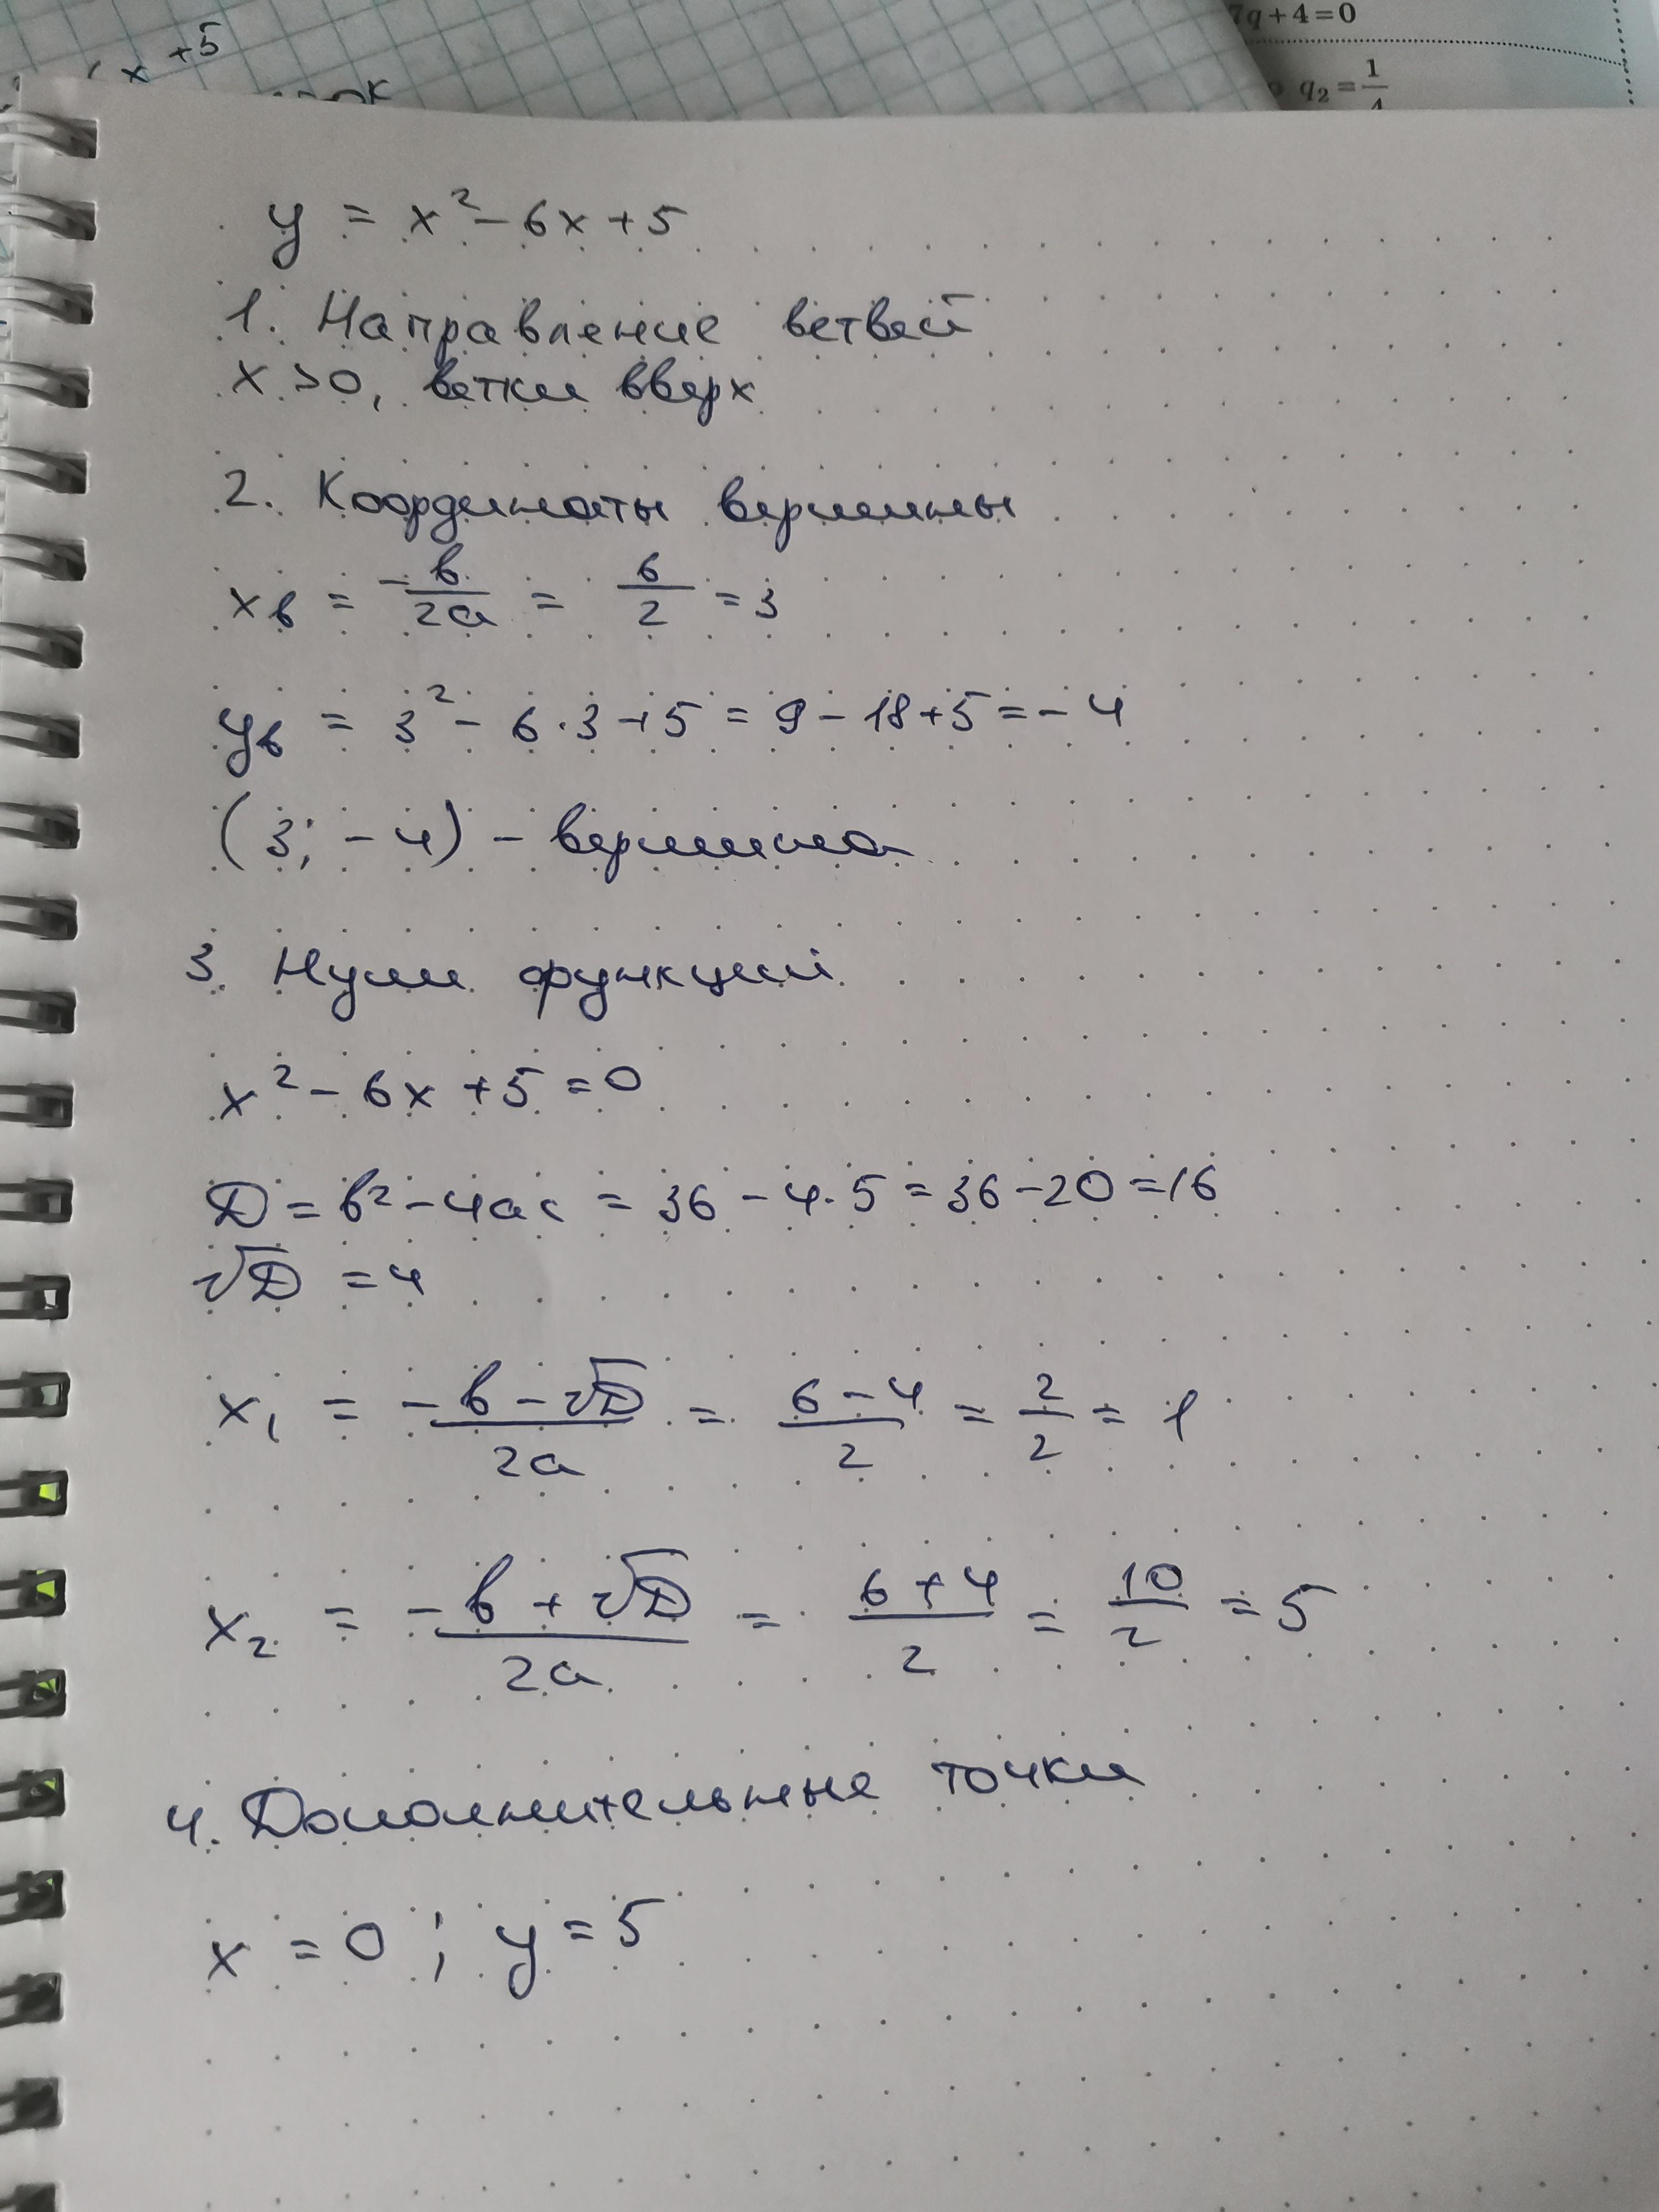 x + 5
7q + 4 = 0
q₂ = 1/4
y = x² - 6x + 5
1. Направление ветвей
x > 0, ветки вверх
2. Координаты вершины
xв = -в/2a = 6/2 = 3
yв = 3² - 6·3 + 5 = 9 - 18 + 5 = -4
(3; -4) - вершина
3. Нули функций
x² - 6x + 5 = 0
D = в² - 4ac = 36 - 4·5 = 36 - 20 = 16
√D = 4
x₁ = (-в - √D)/2a = (6 - 4)/2 = 2/2 = 1
x₂ = (-в + √D)/2a = (6 + 4)/2 = 10/2 = 5
4. Дополнительные точки
x = 0; y = 5